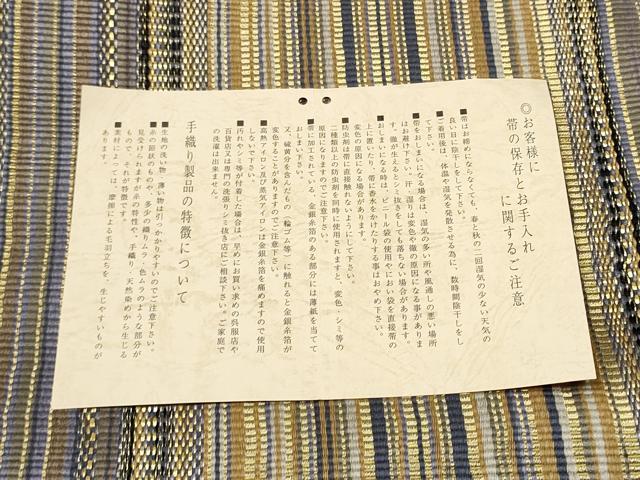 ◎お客様に
帯の保存とお手入れ
に関するご注意
■帯はお締めにならなくても、春と秋の二回湿気の少ない天気の
良い日に陰干しをして下さい。
■ご着用後は、体温や湿気を発散させる為に、数時間陰干しをし
て下さい。
■帯をおしまいになる場合は、湿気の多い所や風通しの悪い場所
はお避け下さい。汗・湿りは変色や黴の原因になる事がありま
す。黴が生えるとシミ抜きをしても落ちない場合があります。
■おしまいになる時は、ビニール袋の使用やにおい袋を直接帯の
上に置いたり、帯に香水をかけたりする事はおやめ下さい。
変色の原因になる場合があります。
■防虫剤は帯に直接触れないようにして下さい。
二種類以上の防虫剤を同時に使用されますと、変色・シミ等の
原因になりますのでご注意下さい。
■帯に加工されている、金銀糸箔のある部分には薄紙を当てて
おしまい下さい。
又、硫黄分を含んだもの（輪ゴム等）に触れると金銀糸箔が
変色することがありますのでご注意下さい。
■高熱アイロン及び蒸気アイロンは金銀糸箔を痛めますので使用
しないで下さい。
■汚れやシミが付着した場合は、早めにお買い求めの呉服店や
百貨店又は専門の洗張りシミ抜き店にご相談下さい。ご家庭で
の洗濯は出来ません。
手織り製品の特徴について
■生地の洗い物、薄い物は引っかかりやすいのでご注意下さい。
■糸の節状のものや、多少の織りムラ・色ムラのような部分が
見受けられますが糸の特性や、手織り・天然染めから生じる
もので、それが特徴です。
■素材によっては、摩擦による毛羽立ちを、生じやすいものが
あります。